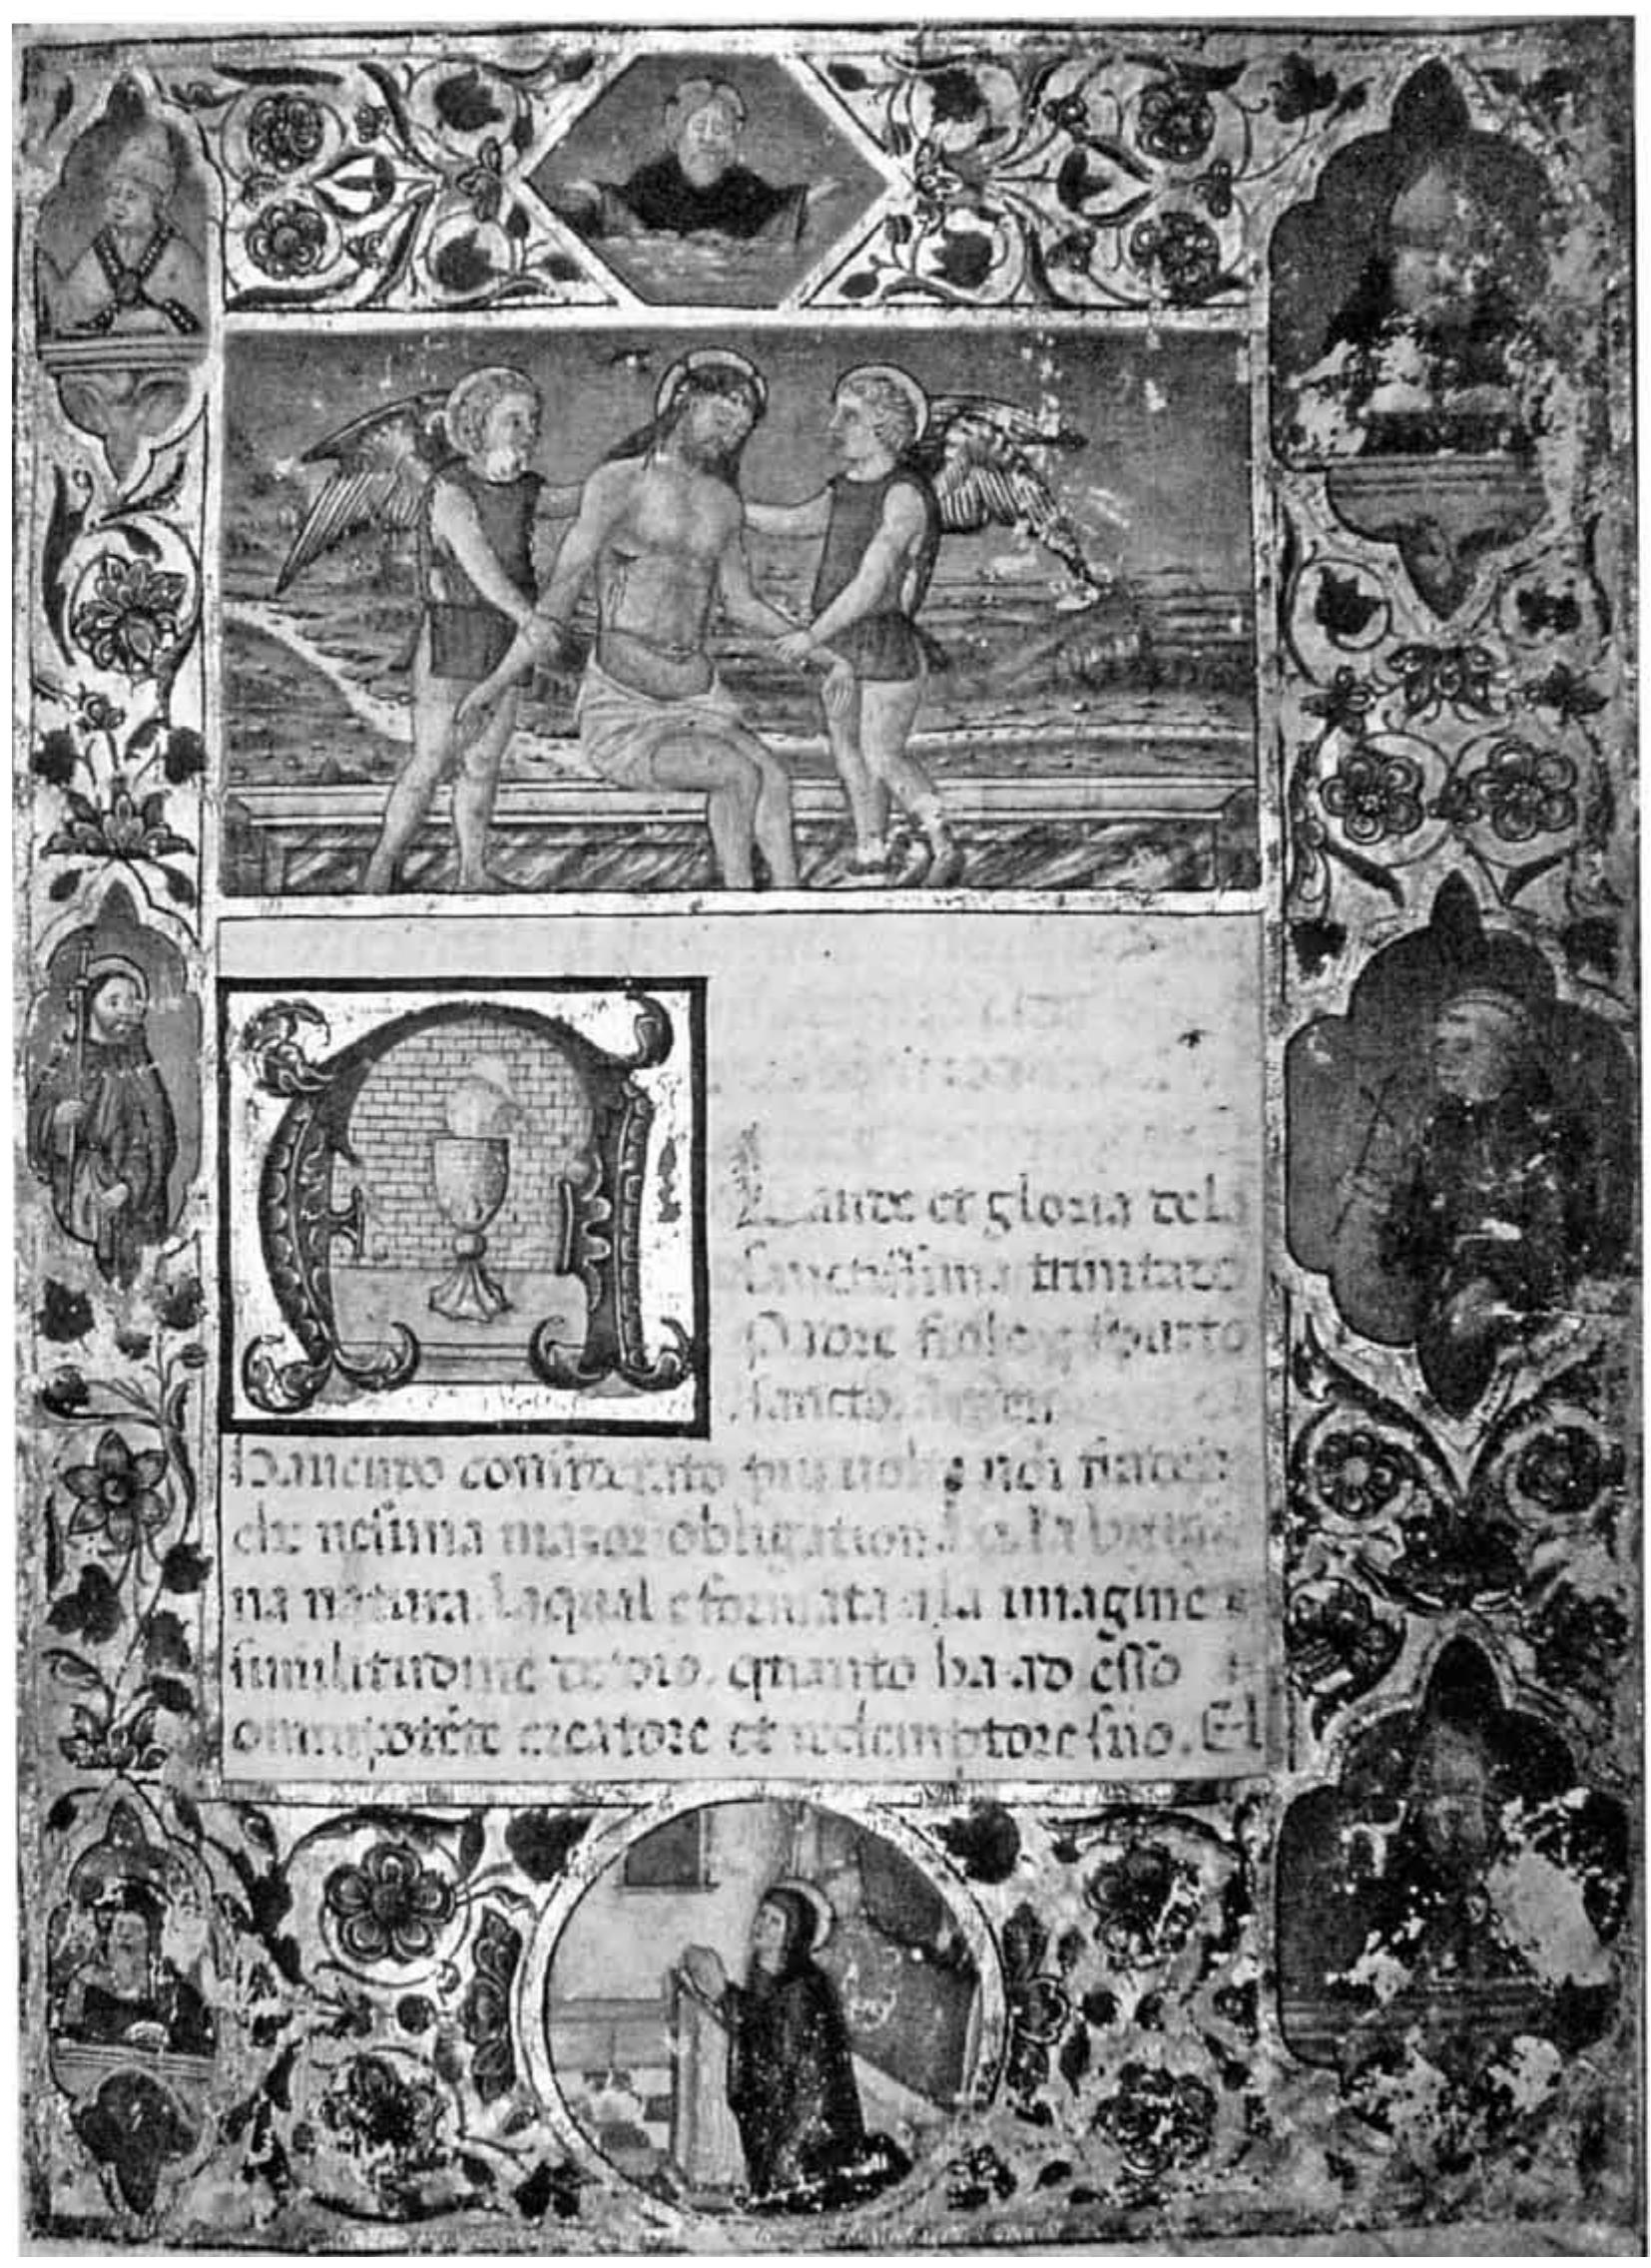 Laude et gloria dela
Sanctissima trinitade
Padre fiolo et spirito
sancto. Amen.
Havendo considerato piu volte noi
che nesuna mazor obligation ha la huma
na natura. laqual e formata ala imagine e
similitudine de dio. quanto ha ad esso
omnipotēte creatore et redemptore suo. El